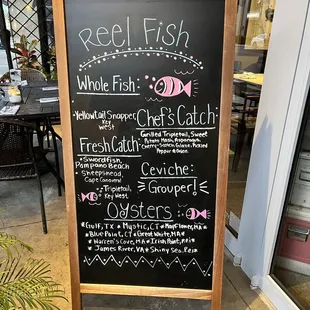 Reel Fish
Whole Fish:
Yellowtail Snapper
Key West
Chef's Catch
Grilled Tripletail, Sweet
Potato Mash, Asparagus,
Pickled
Pepper & Onion
Fresh Catch
*Swordfish,
Pompano Beach
*Sheepshead,
Cape Canaveral
*Tripletail,
Key West
Ceviche:
Grouper!
Oysters
*Gulf, TX *Mystic, CT *Mayflower, MA
*Blue Point, CT *Great White, MA
*Warren's Cove, MA *Irish Point, PEI
*James River, VA *Shiny Sea, PEI